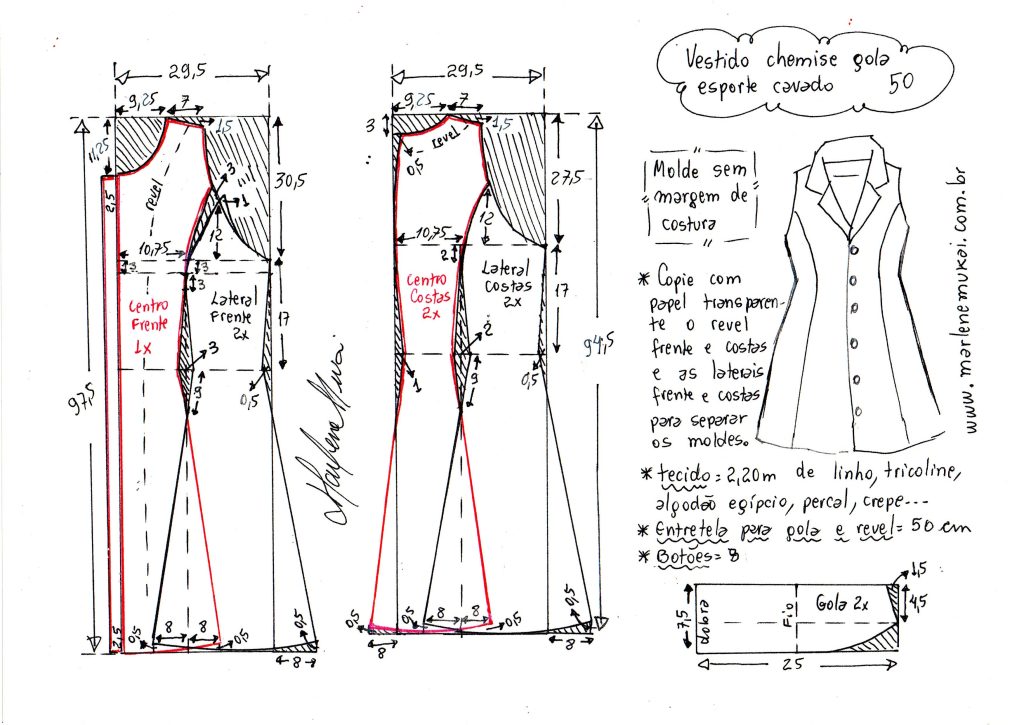 Vestido chemise gola
esporte cavado 50
Molde sem
margem de
costura
* Copie com
papel transparen-
te o revel
frente e costas
e as laterais
frente e costas
para separar
os moldes.
* tecido = 2,20m de linho, tricoline,
algodão egípcio, percal, crepe---
* Entretela para gola e revel = 50 cm
* Botões = 8
www.marlenemukai.com.br
29,5
9,25
7
1,5
11,25
2,5
revel
3
1
12
30,5
10,75
3
3
3
Centro
Frente
1x
Lateral
Frente
2x
17
3
9
0,5
97,5
2,5
0,5
8
8
0,5
0,5
8
29,5
9,25
7
3
1,5
revel
0,5
27,5
12
10,75
2
Centro
Costas
2x
Lateral
Costas
2x
17
2
1
9
0,5
94,5
0,5
8
8
0,5
0,5
8
8
1,5
7,5
dobra
Fio
Gola 2x
4,5
25